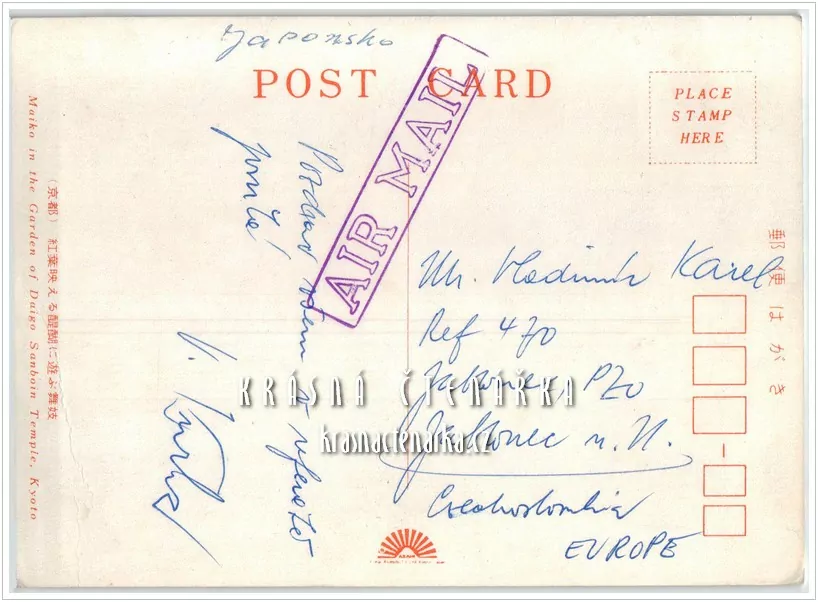 Japonsko
POST CARD
AIR MAIL
PLACE
STAMP
HERE
Pozdrav všem v referátě
posílá
V.
Mr. Vladimír Karel
Ref 470
Jablonec PZO
Jablonec n. N.
Czechoslovakia
EUROPE
郵便はがき
(京都) 紅葉映える醍醐に遊ぶ舞妓
Maiko in the Garden of Daigo Sanboin Temple, Kyoto
KRÁSNÁ ČTENÁŘKA
krasnactenarka.cz